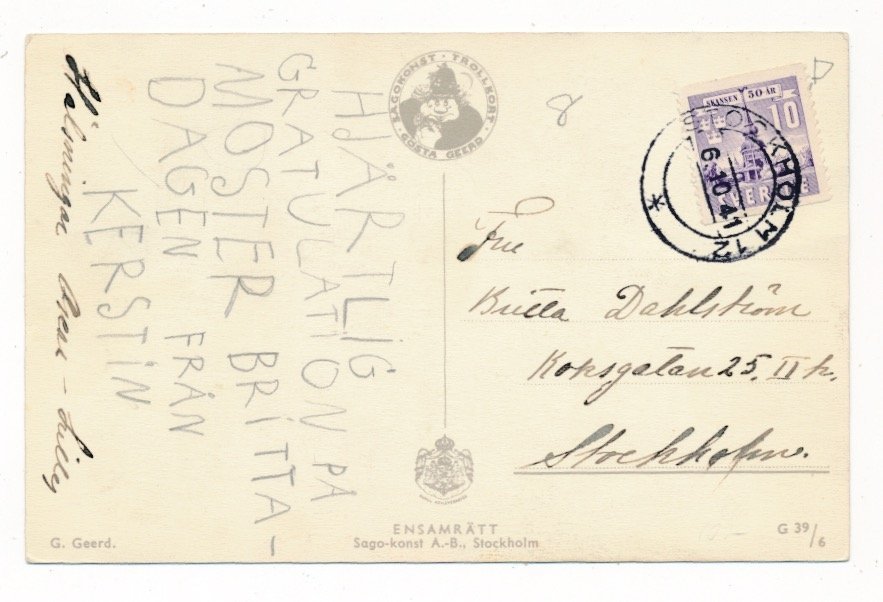 HJÄRTLIG
GRATULATION PÅ
MOSTER BRITTA-
DAGEN FRÅN
KERSTIN
Hälsningar
Lilly
SAGOKONST · TROLLKORT
GÖSTA GEERD
SKANSEN 50 ÅR
10
SVERIGE
STOCKHOLM 12
6.10.41
Fru
Britta Dahlström
25, II tr.
Stockholm.
G. Geerd.
ENSAMRÄTT
Sago-konst A.-B., Stockholm
G 39/6